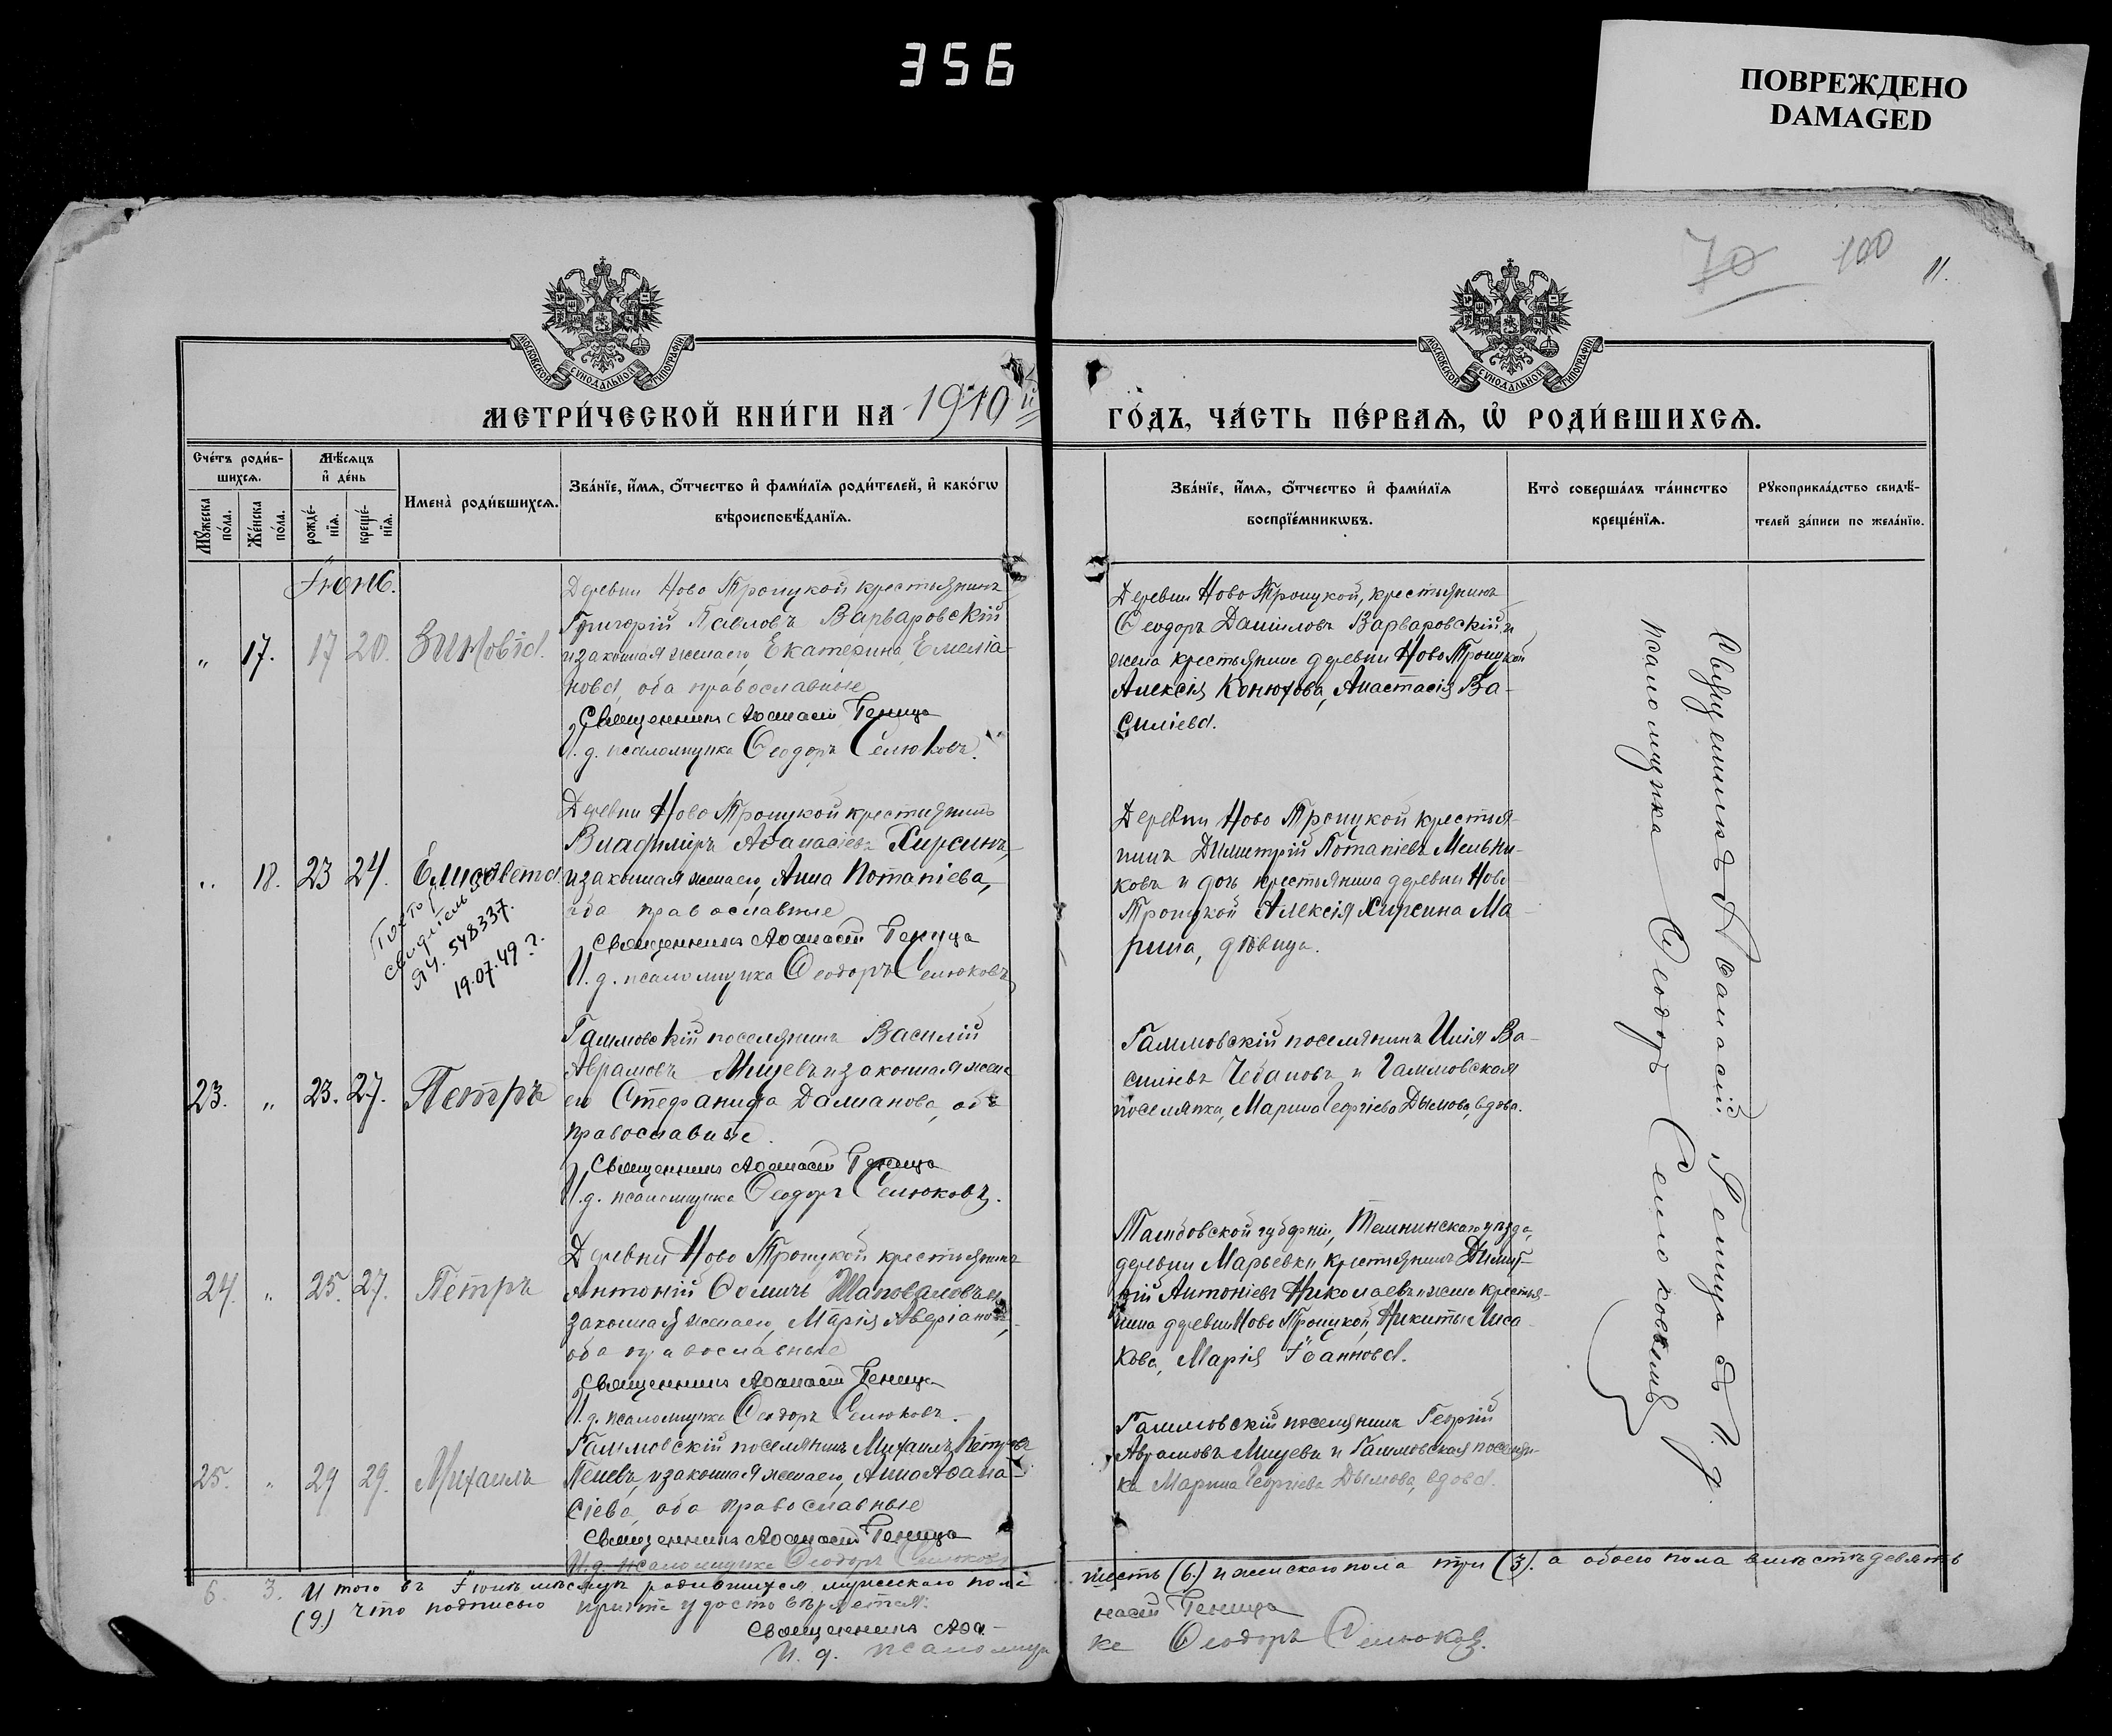 356
ПОВРЕЖДЕНО
DAMAGED
70 100 11.
МОСКОВСКОЙ СѴНОДАЛЬНОЙ ТИПОГРАФІИ
МОСКОВСКОЙ СѴНОДАЛЬНОЙ ТИПОГРАФІИ
МЕТРИ́ЧЕСКОЙ КНИ́ГИ НА 1910 й
ГО́ДЪ, ЧА́СТЬ ПЕ́РВАѦ, Ѡ҆ РОДИ́ВШИХСѦ.
Сче́тъ роди́в-
шихсѧ.
Мꙋ́жеска по́ла.
Же́нска по́ла.
Мѣ́сѧцъ
и҆ де́нь
рожде́-нїѧ.
креще́-нїѧ.
Имена̀ роди́вшихсѧ.
Зва́нїе, и҆́мѧ, ѻ҆́тчество и҆ фами́лїѧ роди́телей, и҆ како́гѡ
вѣроисповѣ́данїѧ.
Зва́нїе, и҆́мѧ, ѻ҆́тчество и҆ фами́лїѧ
воспрїе́мникѡвъ.
Кто̀ соверша́лъ та́инство
креще́нїѧ.
Рꙋкоприкла́дство свидѣ́-
телей за́писи по жела́нїю.
Іюнь.
„ 17. 17 20. Зиновія.
Деревни Ново Троицкой крестьянинъ
Григорій Павловъ Варваровскій
и законная жена его, Екатерина Емелиа-
нова, оба православные
Священникъ Аѳанасій Геница
И. д. псаломщика Ѳеодоръ Селюковъ.
Деревни Ново Троицкой, крестьянинъ
Ѳеодоръ Даниловъ Варваровскій и
жена крестьянина деревни Ново Троицкой
Алексія Конюхова, Анастасія Ва-
силіева.
„ 18. 23 24. Елисавета.
19.07.49 г.
Деревни Ново Троицкой крестьянинъ
Владиміръ Аѳанасіевъ Хирсинъ,
и законная жена его, Анна Потапіева,
оба православные
Священникъ Аѳанасій Геница
И. д. псаломщика Ѳеодоръ Селюковъ
Деревни Ново Троицкой крестья-
нинъ Димитрій Потапіевъ Мельни-
ковъ и дочь крестьянина деревни Ново
Троицкой Алексія Хирсина Ма-
рина, дѣвица.
23. „ 23. 27. Петръ
Василій
Аврамовъ Мицевъ и законная жена
его Стефанида Дамианова, оба
православные.
Священникъ Аѳанасій Геница
И. д. псаломщика Ѳеодоръ Селюковъ.
поселянинъ Илія Ва-
силіевъ Чебановъ и
поселянка, Марина Георгіева Дымова, вдова.
24. „ 25. 27. Петръ
Деревни Ново Троицкой крестьянинъ
Антоній Ѳомичъ Шаповаловъ и
законная жена его, Марія Аверіанова,
оба православные
Священникъ Аѳанасій Геница
И. д. псаломщика Ѳеодоръ Селюковъ.
Тамбовской губерніи, уѣзда,
деревни Марьевки крестьянинъ Димит-
рій Антоніевъ Николаевъ и жена крестья-
нина деревни Ново Троицкой, Никиты Лиса-
кова, Марія Іоаннова.
25. „ 29 29. Михаилъ
поселянинъ Михаилъ Петровъ
Пеневъ, и законная жена его, Анна Аѳана-
сіева, оба православные
Священникъ Аѳанасій Геница
И. д. псаломщика Ѳеодоръ Селюковъ
поселянинъ Георгій
Аврамовъ Мицевъ и поселян-
ка Марина Георгіева Дымова, вдова.
Священникъ Аѳанасій Геница съ И. д.
псаломщика Ѳеодоръ Селюковымъ
6. 3. Итого въ Іюнѣ мѣсяцѣ родившихся мужескаго пола шесть (6.) и женскаго пола три (3). а обоего пола вмѣстѣ девять
(9.) что подписью причта удостовѣряется:
Священникъ Аѳанасій Геница
И. д. псаломщика Ѳеодоръ Селюковъ.